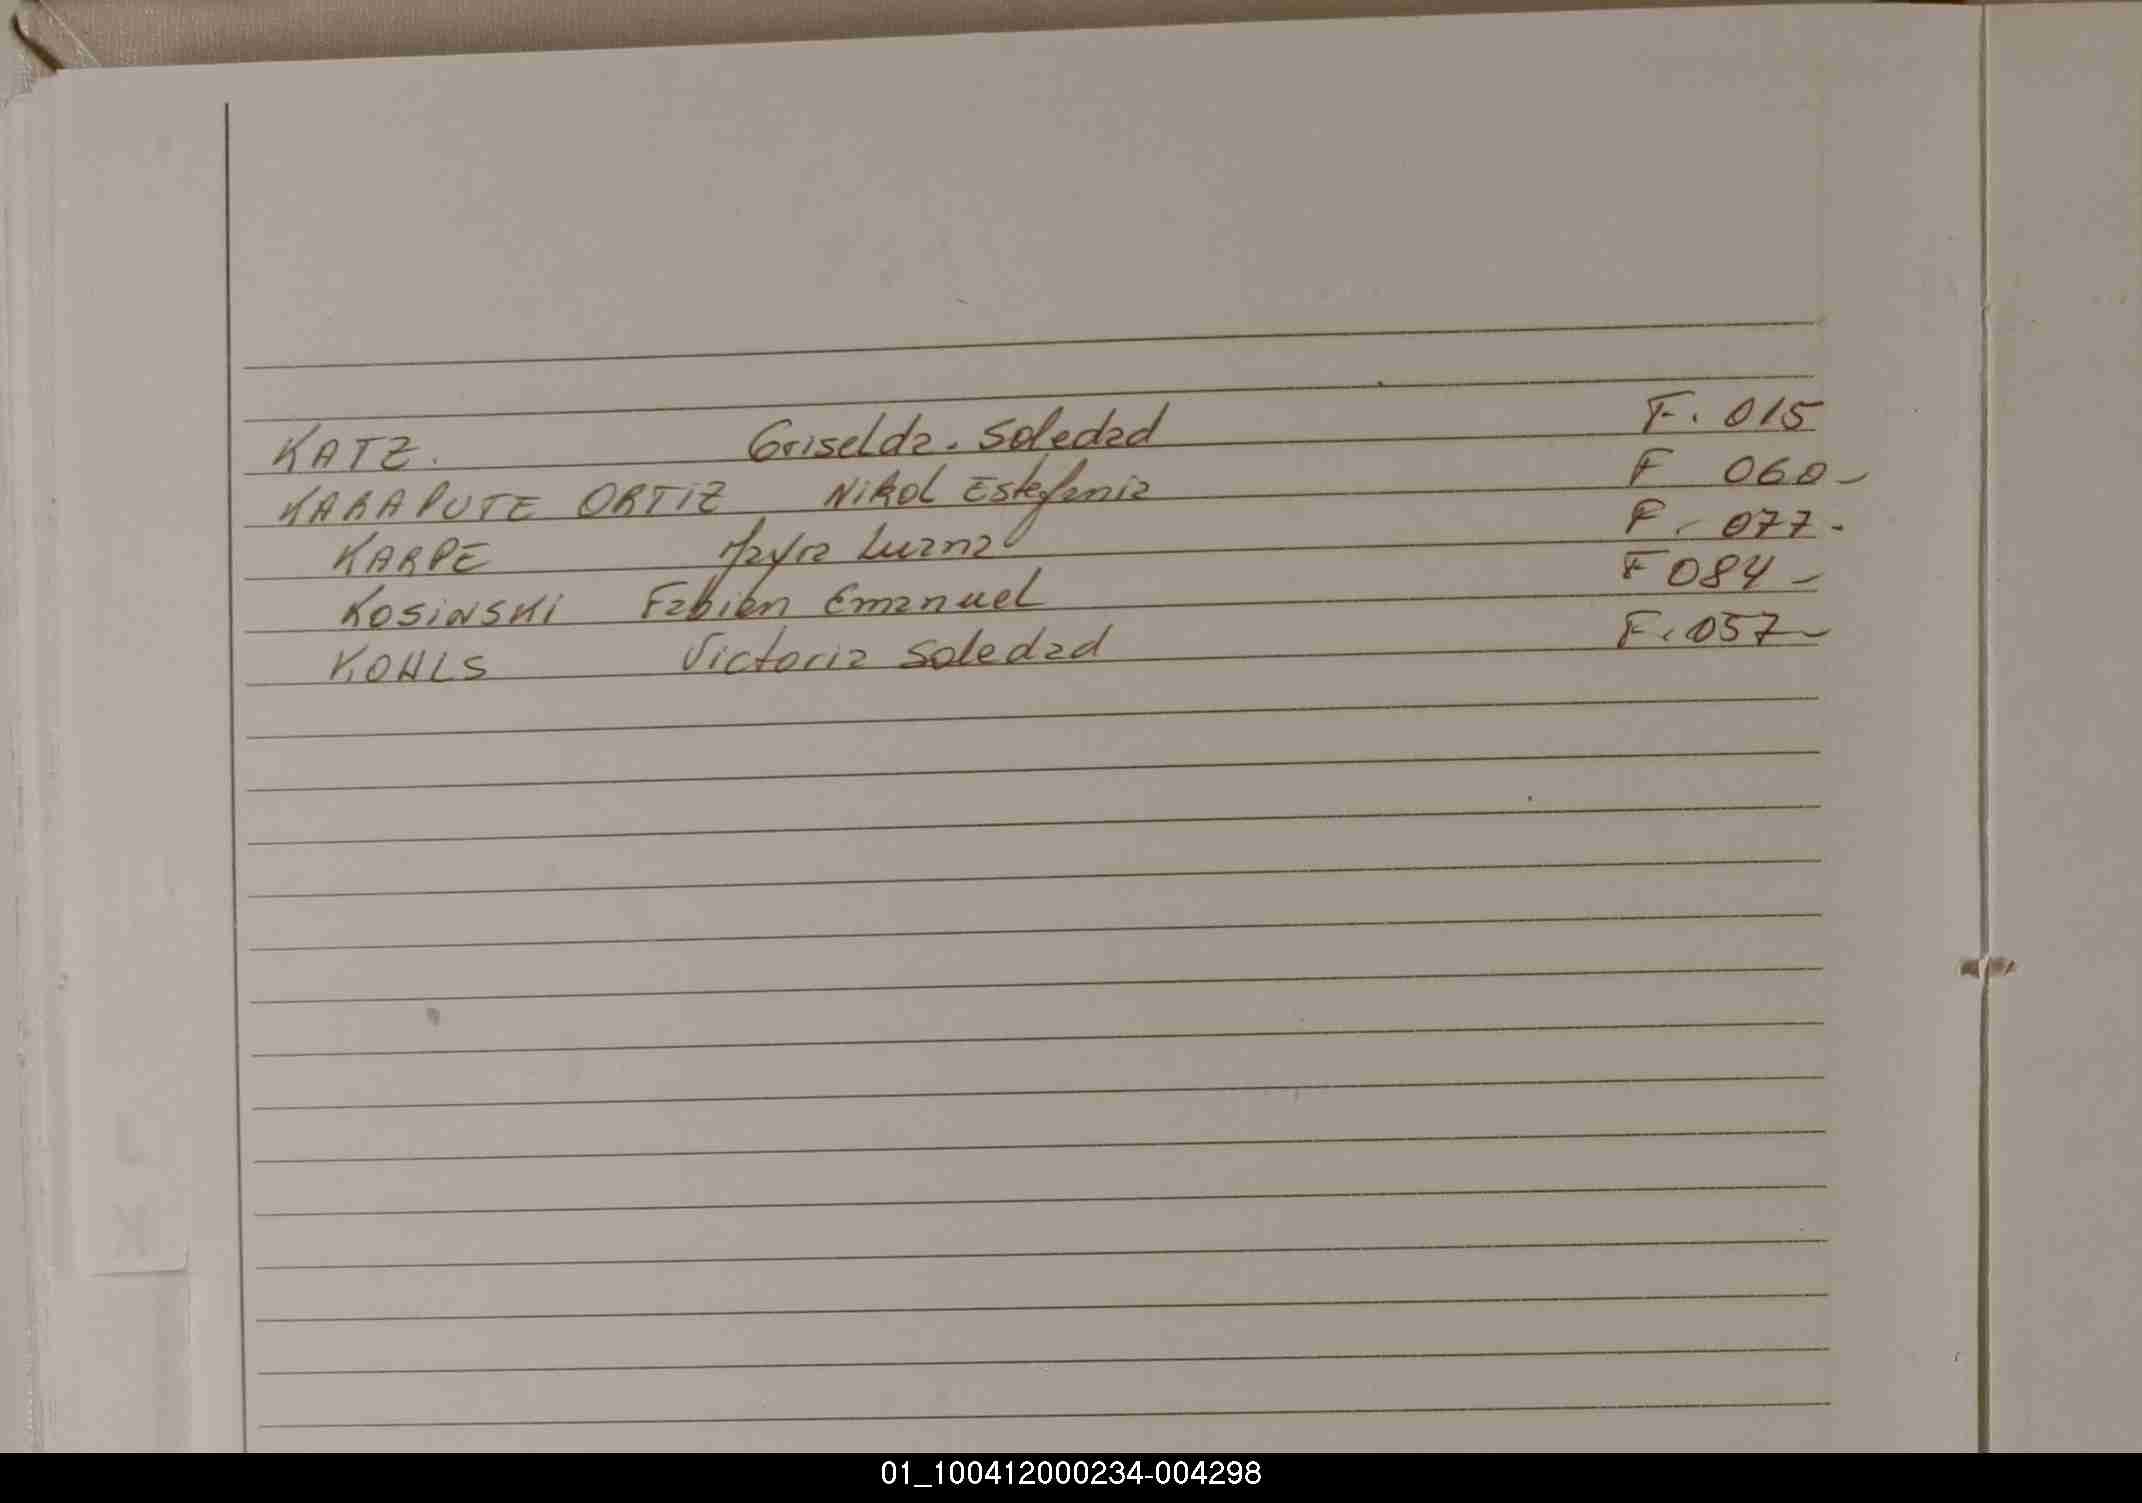 KATZ. Griselda. Soledad F. 015
KARAPUTE ORTIZ Nikol Estefania F 060-
KARPE Mayra Luana F. 077-
KOSINSKI Fabián Emanuel F 084-
KOHLS Victoria Soledad F. 057-
01_100412000234-004298